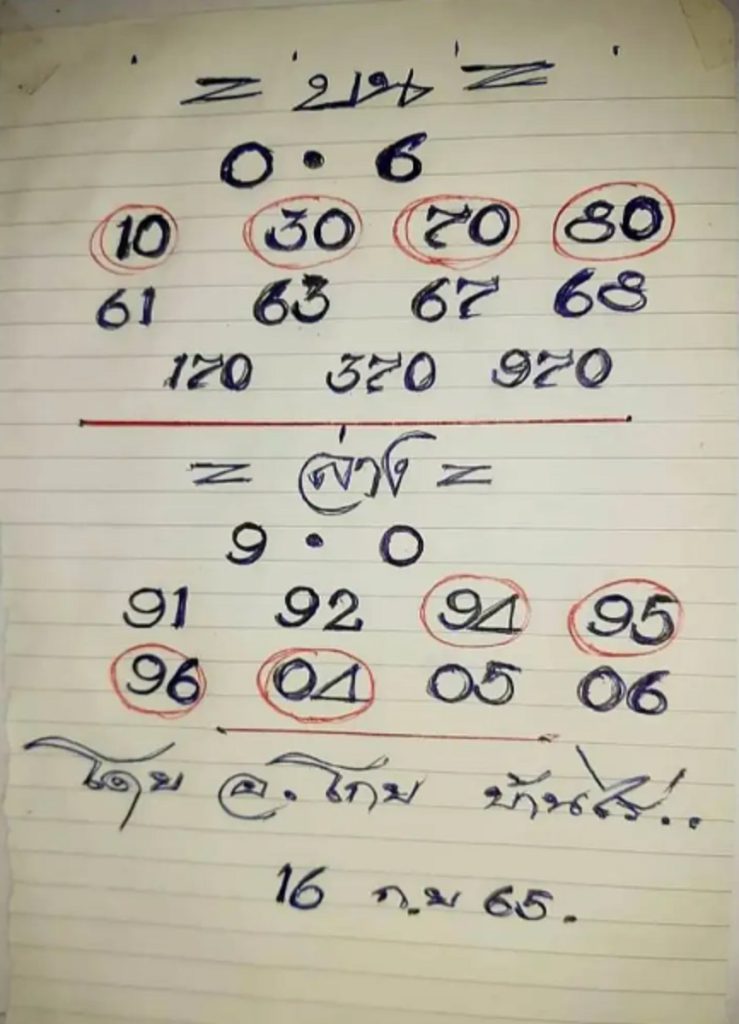 = บน =
0 • 6
10 30 70 80
61 63 67 68
170 370 970
= ล่าง =
9 • 0
91 92 94 95
96 04 05 06
โดย อ. โกย บ้านไร่..
16 ก.ย 65.